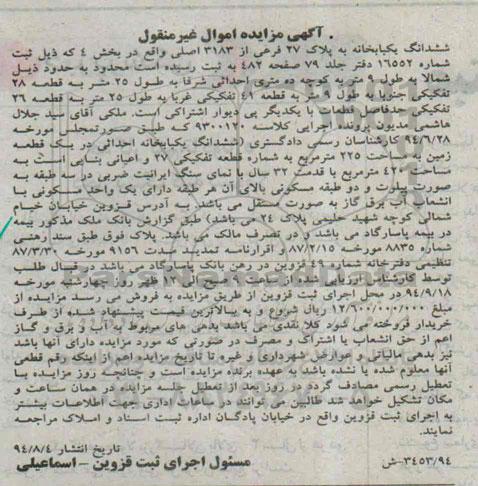 آگهی مزایده اموال غیرمنقول
ششدانگ یکبابخانه به پلاک ۲۷ فرعی از ۳۱۸۳ اصلی واقع در بخش ۴ که ذیل ثبت
شماره ۱۶۵۵۲ دفتر جلد ۷۹ صفحه ۴۸۲ به ثبت رسیده است محدود به حدود ذیل
شمالا به طول ۹ متر به کوچه ده متری احداثی شرقا به طول ۲۵ متر به قطعه ۲۸
تفکیکی جنوبا به طول ۹ متر به قطعه ۴۱ تفکیکی غربا به طول ۲۵ متر به قطعه ۲۶
تفکیکی حدفاصل قطعات با یکدیگر پی دیوار اشتراکی است. ملکی آقای سید جلال
هاشمی مدیون پرونده اجرایی کلاسه ۹۳۰۰۱۲۰ که طبق صورتمجلس مورخه
۹۴/۶/۲۸ کارشناسان رسمی دادگستری (ششدانگ یکبابخانه احداثی در یک قطعه
زمین به مساحت ۲۲۵ مترمربع به شماره قطعه تفکیکی ۲۷ و اعیانی بنایی است به
مساحت ۴۲۰ مترمربع با قدمت ۳۲ سال با نمای سنگ ایرانیت ضربی در سه طبقه به
صورت پیلوت و دو طبقه مسکونی بالای آن هر طبقه دارای یک واحد مسکونی با
انشعاب آب برق گاز به صورت مستقل می باشد. به آدرس قزوین خیابان خیام
شمالی کوچه شهید حلیمی پلاک ۲۴ می باشد) طبق گزارش بانک ملک مذکور بیمه
در بیمه پاسارگاد می باشد و در تصرف مالک می باشد. پلاک فوق طبق سند رهنی
شماره ۸۸۳۵ مورخه ۸۷/۲/۱۵ و اقرارنامه تمدید مدت ۹۱۵۶ مورخه ۸۷/۳/۳۰
تنظیمی دفترخانه شماره ۴۹ قزوین در رهن بانک پاسارگاد می باشد در قبال طلب
توسط کارشناس ارزیابی شده از ساعت ۹ صبح الی ۱۲ ظهر روز چهارشنبه مورخه
۹۴/۹/۱۸ در محل اجرای ثبت قزوین از طریق مزایده به فروش می رسد مزایده از
مبلغ ۱۲/۶۰۰/۰۰۰/۰۰۰ ریال شروع و به بالاترین قیمت پیشنهاد شده از طرف
خریدار فروخته می شود کلا نقدی می باشد بدهی های مربوط به آب و برق و گاز
اعم از حق انشعاب یا اشتراک و مصرف در صورتی که مورد مزایده دارای آنها باشد
نیز بدهی مالیاتی و عوارض شهرداری و غیره تا تاریخ مزایده اعم از اینکه رقم قطعی
آنها معلوم شده یا نشده باشد به عهده برنده مزایده است و چنانچه روز مزایده با
تعطیل رسمی مصادف گردد در روز بعد از تعطیل جلسه مزایده در همان ساعت و
مکان تشکیل خواهد شد طالبین می توانند در ساعات اداری جهت اطلاعات بیشتر
به اجرای ثبت قزوین واقع در خیابان پادگان اداره ثبت اسناد و املاک مراجعه
نمایند.
تاریخ انتشار ۹۴/۸/۴
۳۴۵۳/۹۴-ش مسئول اجرای ثبت قزوین – اسماعیلی